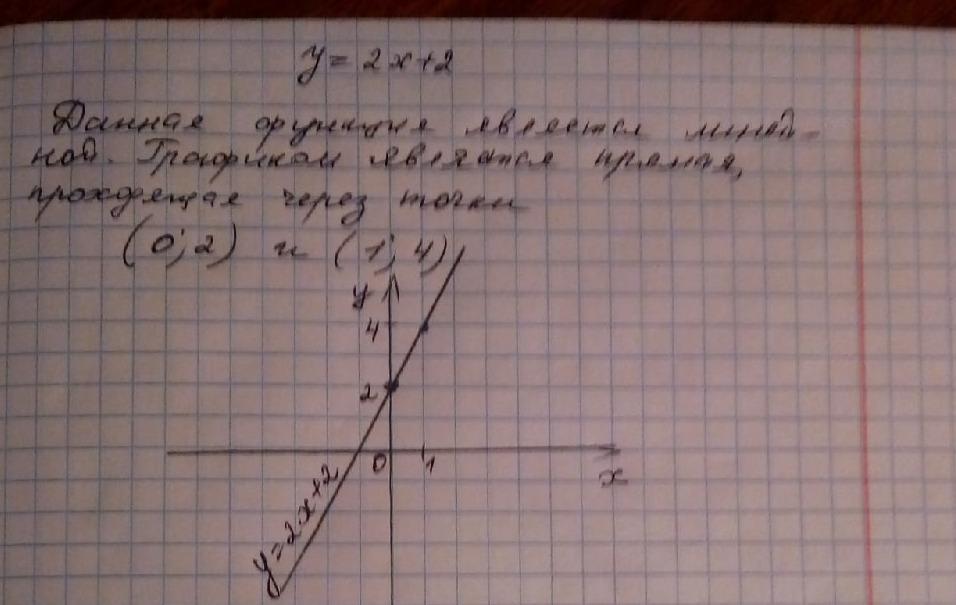 y = 2x+2
Данная функция является линей-
ной. Графиком является прямая,
проходящая через точки
(0; 2) и (1; 4)
y
4
2
0 1
x
y=2x+2